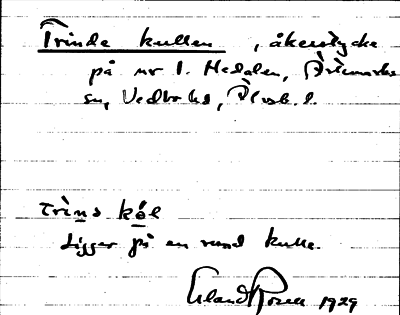 Trinde kullen, åkerstycke
på nr 1. Hedalen, Ärtemarks
sn, Vedbo hd, Älvsb. l.
trins kǿl
Ligger på en rund kulle.
Erland Rosell 1929